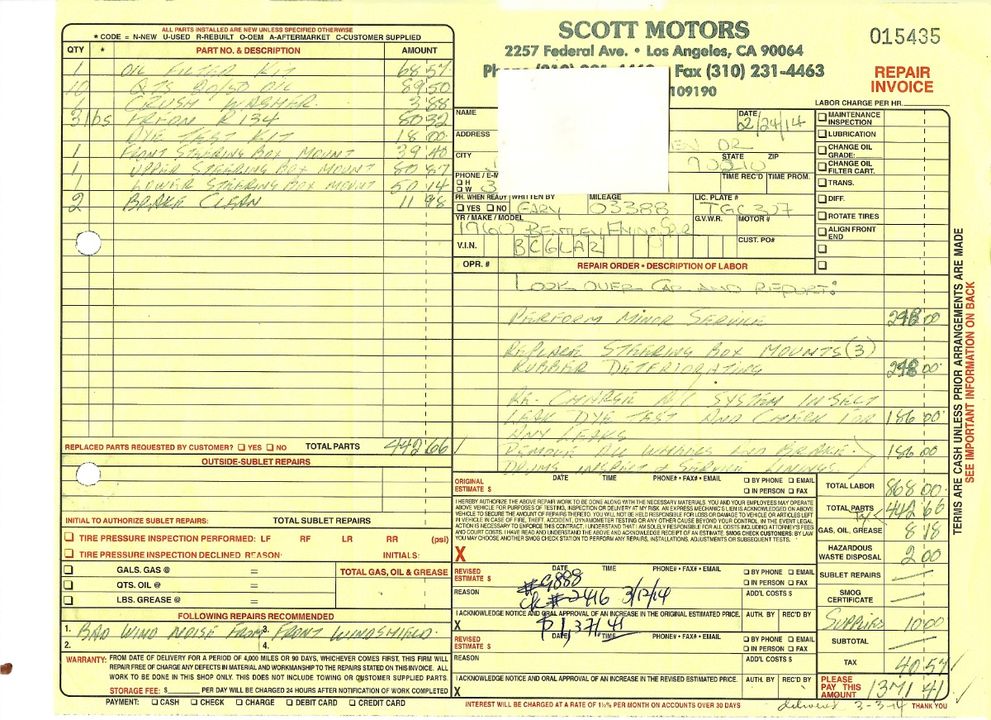 ALL PARTS INSTALLED ARE NEW UNLESS SPECIFIED OTHERWISE
* CODE = N-NEW U-USED R-REBUILT O-OEM A-AFTERMARKET C-CUSTOMER SUPPLIED
QTY * PART NO. & DESCRIPTION AMOUNT
1 OIL FILTER KIT 68.57
10 QTS 20/50 OIL 89.50
1 CRUSH WASHER. 3.88
3 lbs FREON R 134 80.32
DYE TEST KIT 18.00
1 FRONT STEERING BOX MOUNT 39.40
1 UPPER STEERING BOX MOUNT 80.87
1 LOWER STEERING BOX MOUNT 50.14
2 BRAKE CLEAN 11.98
REPLACED PARTS REQUESTED BY CUSTOMER? YES NO TOTAL PARTS 442.66
OUTSIDE-SUBLET REPAIRS
INITIAL TO AUTHORIZE SUBLET REPAIRS: TOTAL SUBLET REPAIRS
TIRE PRESSURE INSPECTION PERFORMED: LF RF LR RR (psi)
TIRE PRESSURE INSPECTION DECLINED REASON: INITIALS:
GALS. GAS @ = TOTAL GAS, OIL & GREASE
QTS. OIL @ =
LBS. GREASE @ =
FOLLOWING REPAIRS RECOMMENDED
1. BAD WIND NOISE FROM FRONT WINDSHIELD. 3.
2. 4.
WARRANTY: FROM DATE OF DELIVERY FOR A PERIOD OF 4,000 MILES OR 90 DAYS, WHICHEVER COMES FIRST, THIS FIRM WILL
REPAIR FREE OF CHARGE ANY DEFECTS IN MATERIAL AND WORKMANSHIP TO THE REPAIRS STATED ON THIS INVOICE. ALL
WORK TO BE DONE IN THIS SHOP ONLY. THIS DOES NOT INCLUDE TOWING OR CUSTOMER SUPPLIED PARTS.
STORAGE FEE: $ PER DAY WILL BE CHARGED 24 HOURS AFTER NOTIFICATION OF WORK COMPLETED
PAYMENT: CASH CHECK CHARGE DEBIT CARD CREDIT CARD
SCOTT MOTORS
2257 Federal Ave. • Los Angeles, CA 90064
Fax (310) 231-4463
109190
015435
REPAIR
INVOICE
LABOR CHARGE PER HR.
NAME DATE 2/24/14
ADDRESS DR
CITY STATE ZIP
PHONE / E-M TIME REC'D TIME PROM.
H
W 3
PH. WHEN READY WRITTEN BY MILEAGE LIC. PLATE #
YES NO GARY 03388 TGC307
YR / MAKE / MODEL G.V.W.R. MOTOR #
1960 BENTLEY
V.I.N. BC6LAR CUST. PO#
MAINTENANCE INSPECTION
LUBRICATION
CHANGE OIL GRADE:
CHANGE OIL FILTER CART.
TRANS.
DIFF.
ROTATE TIRES
ALIGN FRONT END
OPR. # REPAIR ORDER • DESCRIPTION OF LABOR
LOOK OVER CAR AND REPORT:
PERFORM MINOR SERVICE 248.00
REPLACE STEERING BOX MOUNTS (3)
RUBBER DETERIORATING 248.00
RE-CHARGE A/C SYSTEM INJECT
LEAK DYE TEST AND CHECK FOR 186.00
ANY LEAKS
REMOVE ALL WHEELS AND BRAKE 186.00
DRUMS INSPECT & SERVICE LININGS.
ORIGINAL ESTIMATE $ DATE TIME PHONE# • FAX# • EMAIL BY PHONE EMAIL IN PERSON FAX
I HEREBY AUTHORIZE THE ABOVE REPAIR WORK TO BE DONE ALONG WITH THE NECESSARY MATERIALS. YOU AND YOUR EMPLOYEES MAY OPERATE
ABOVE VEHICLE FOR PURPOSES OF TESTING, INSPECTION OR DELIVERY AT MY RISK. AN EXPRESS MECHANIC'S LIEN IS ACKNOWLEDGED ON ABOVE
VEHICLE TO SECURE THE AMOUNT OF REPAIRS THERETO. YOU WILL NOT BE HELD RESPONSIBLE FOR LOSS OR DAMAGE TO VEHICLE OR ARTICLES LEFT
IN VEHICLE IN CASE OF FIRE, THEFT, ACCIDENT, DYNAMOMETER TESTING OR ANY OTHER CAUSE BEYOND YOUR CONTROL.
X
REVISED ESTIMATE $ DATE TIME PHONE# • FAX# • EMAIL BY PHONE EMAIL IN PERSON FAX
REASON ADD'L COSTS $
#9888
CK #2416 3/12/14
I ACKNOWLEDGE NOTICE AND ORAL APPROVAL OF AN INCREASE IN THE ORIGINAL ESTIMATED PRICE. AUTH. BY REC'D BY
X $1,371.41
REVISED ESTIMATE $ DATE TIME PHONE# • FAX# • EMAIL BY PHONE EMAIL IN PERSON FAX
REASON ADD'L COSTS $
I ACKNOWLEDGE NOTICE AND ORAL APPROVAL OF AN INCREASE IN THE REVISED ESTIMATED PRICE. AUTH. BY REC'D BY
X
INTEREST WILL BE CHARGED AT A RATE OF 1½% PER MONTH ON ACCOUNTS OVER 30 DAYS
TOTAL LABOR 868.00
TOTAL PARTS 442.66
GAS, OIL, GREASE 8.18
HAZARDOUS WASTE DISPOSAL 2.00
SUBLET REPAIRS —
SMOG CERTIFICATE —
SUPPLIES 10.00
SUBTOTAL
TAX 40.57
PLEASE PAY THIS AMOUNT 1371.41
delivered 3-3-14 THANK YOU
TERMS ARE CASH UNLESS PRIOR ARRANGEMENTS ARE MADE
SEE IMPORTANT INFORMATION ON BACK